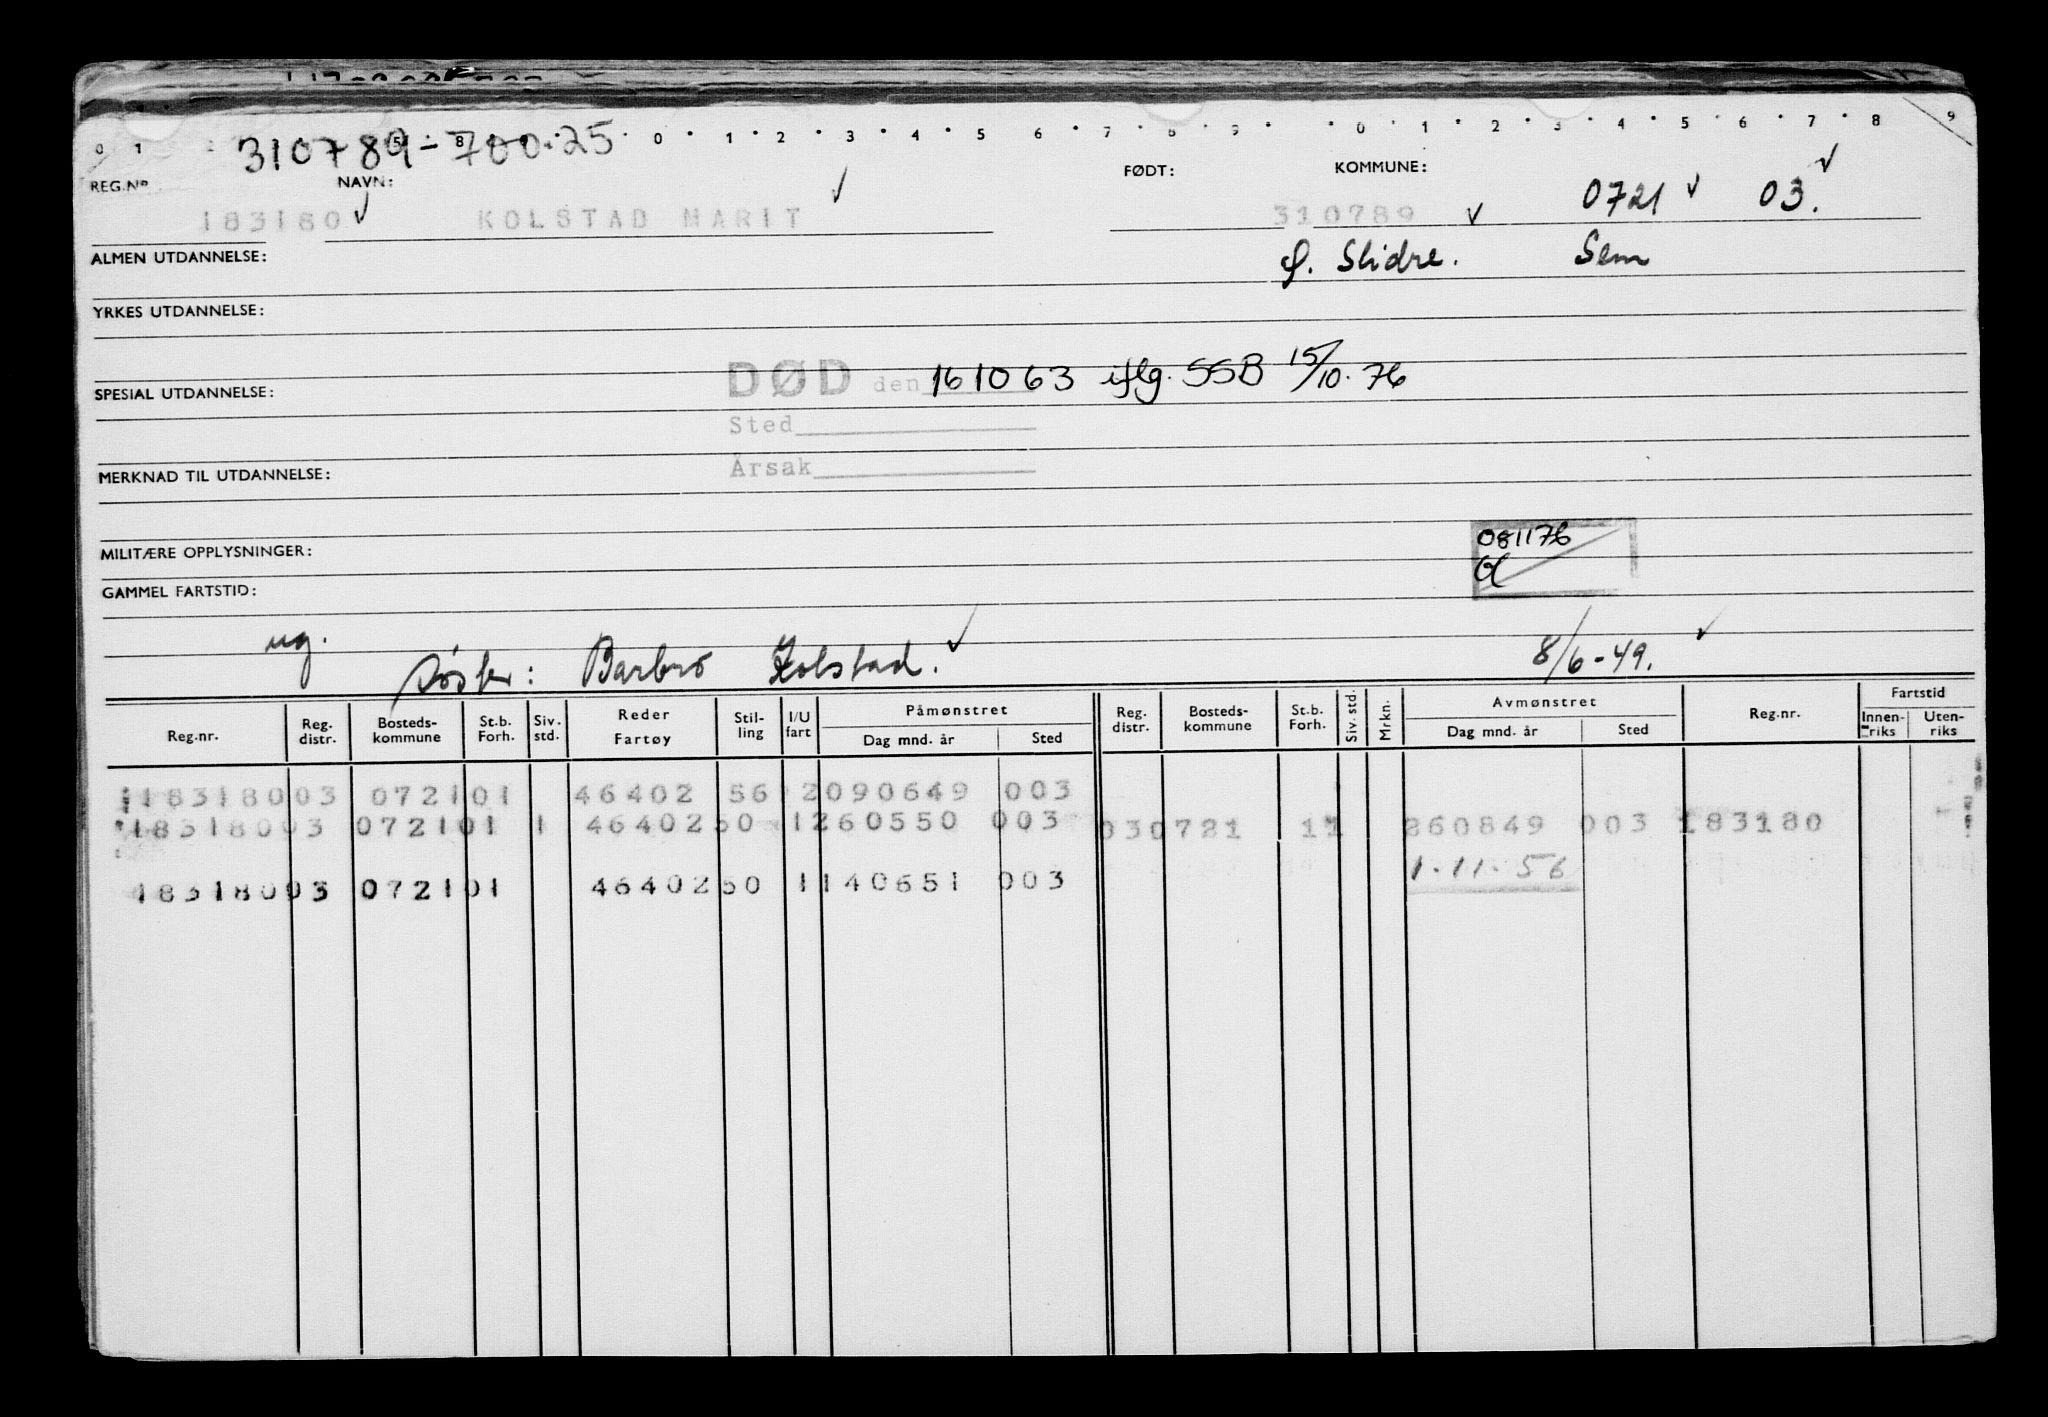 0 1 5 8 0 1 2 3 4 5 6 7 8 9 0 1 2 3 4 5 6 7 8 9
310789-700.25
REG.Nº NAVN: FØDT: KOMMUNE:
183180 KOLSTAD MARIT 310789 0721 03.
ALMEN UTDANNELSE: Ø. Slidre. Sem
YRKES UTDANNELSE:
SPESIAL UTDANNELSE: DØD den 161063 iflg. SSB 15/10.76
Sted
MERKNAD TIL UTDANNELSE: Årsak
MILITÆRE OPPLYSNINGER: 081176
GAMMEL FARTSTID:
ug. søster: Barbro Kolstad. 8/6-49.
Reg.nr. Reg. distr. Bosteds- kommune St.b. Forh. Siv. std. Reder Fartøy Stil- ling I/U fart Påmønstret Dag mnd. år Sted Reg. distr. Bosteds- kommune St.b. Forh. Siv. std. Mrkn. Avmønstret Dag mnd. år Sted Reg.nr. Fartstid Innen- riks Uten- riks
118318003 072101 46402 56 2090649 003
18318003 072101 1 4640250 1260550 003 030721 11 260849 003 183180
1.11.56
18318003 072101 4640250 1140651 003